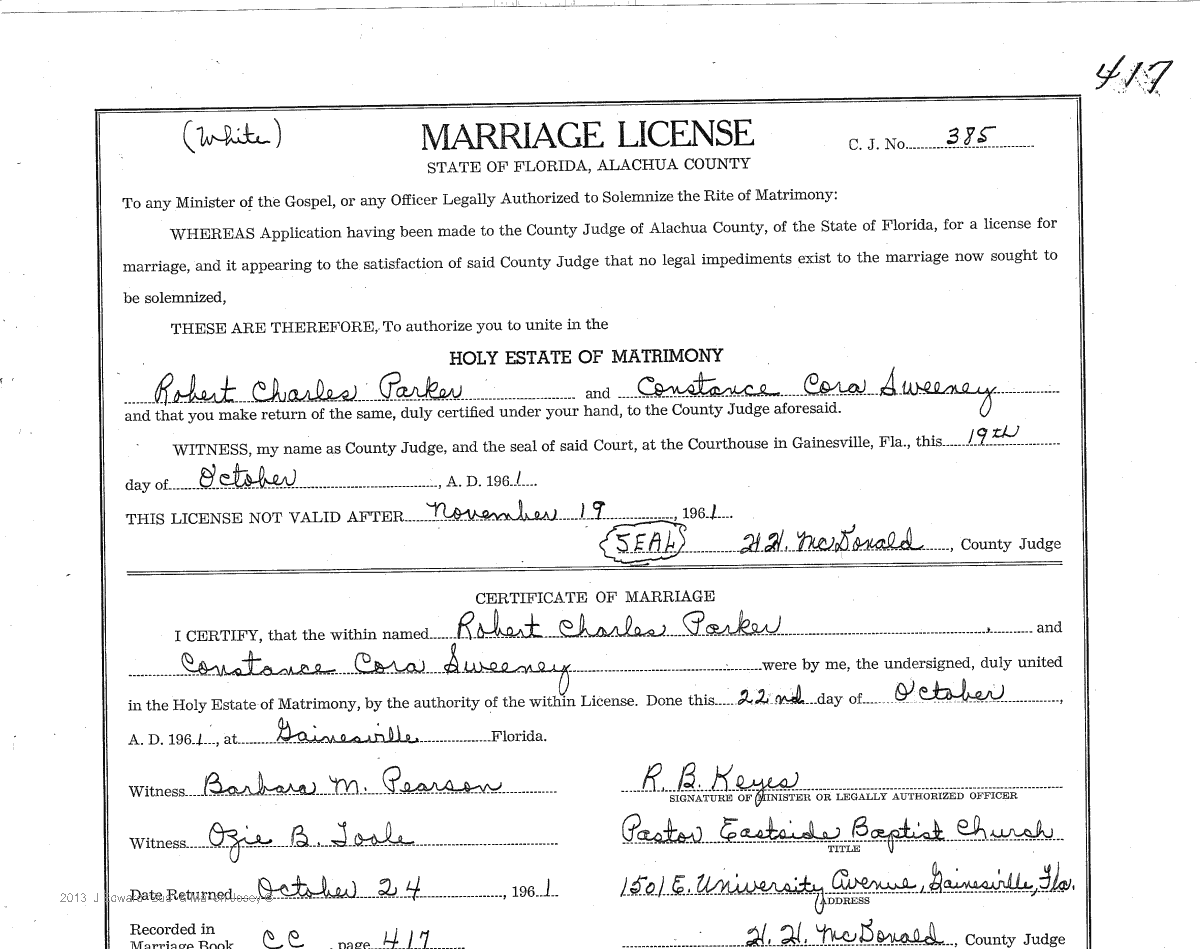 417
(White) MARRIAGE LICENSE C. J. No. 385
STATE OF FLORIDA, ALACHUA COUNTY
To any Minister of the Gospel, or any Officer Legally Authorized to Solemnize the Rite of Matrimony:
WHEREAS Application having been made to the County Judge of Alachua County, of the State of Florida, for a license for
marriage, and it appearing to the satisfaction of said County Judge that no legal impediments exist to the marriage now sought to
be solemnized,
THESE ARE THEREFORE, To authorize you to unite in the
HOLY ESTATE OF MATRIMONY
Robert Charles Parker and Constance Cora Sweeney
and that you make return of the same, duly certified under your hand, to the County Judge aforesaid.
WITNESS, my name as County Judge, and the seal of said Court, at the Courthouse in Gainesville, Fla., this 19th
day of October, A. D. 1961
THIS LICENSE NOT VALID AFTER November 19, 1961
SEAL H. H. McDonald, County Judge
CERTIFICATE OF MARRIAGE
I CERTIFY, that the within named Robert Charles Parker and
Constance Cora Sweeney were by me, the undersigned, duly united
in the Holy Estate of Matrimony, by the authority of the within License. Done this 22nd day of October,
A. D. 1961, at Gainesville Florida.
Witness Barbara M. Pearson R. B. Keyes
SIGNATURE OF MINISTER OR LEGALLY AUTHORIZED OFFICER
Witness Ozie B. Toole Pastor Eastside Baptist Church
TITLE
Date Returned October 24, 1961. 1501 E. University Avenue, Gainesville, Fla.
2013 J
ADDRESS
Recorded in
Marriage Book CC page 417 H. H. McDonald, County Judge